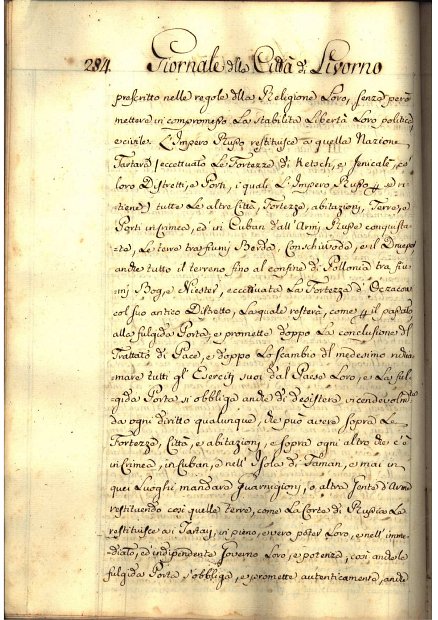 284 Giornale della Città di Livorno
prescritto nelle regole della Religione Loro, senza però
mettere in compromesso La stabilita Libertà Loro politica,
e civile. L'Impero Russo restituisce a quella Nazione
Tartara (eccettuato Le Fortezze di Kersch, e Jenicale, co'
loro Distretti, e Porti, i quali L'Impero Russo p se ri-
tiene) tutte Le altre Città, Fortezze, abitazioni, Terre, e
Porti in Crimea, ed in Cuban dall'Armi Russe conquista-
te, Le terre tra fiumi Berda, Conschiwoda, ed il Dnieper
anche tutto il terreno fino al confine di Pollonia tra fiu-
mi Bog, e Niester, eccettuata La Fortezza d'Oczacow
col suo antico Distretto, La quale resterà, come p il passato
alla fulgida Porta, e promette doppo La conclusione del
Trattato di Pace, e doppo Lo scambio del medesimo richia-
mare tutti gl'Eserciti suoi dal Paese Loro, e La ful-
gida Porta si obbliga anche di desistere vicendevolmte
da ogni diritto qualunque, che può avere sopra Le
Fortezze, Città, e abitazioni, e sopra ogni altro che c'è
in Crimea, in Cuban, e nell'Isola di Taman, e mai in
quei Luoghi mandare guarnigioni, o altra Gente d'Armi
restituendo così quelle terre, come La Corte di Russia La
restituisce ai Tartari, in pieno, e vero poter Loro, e nell'imme-
diato, ed indipendente Governo Loro, e potenza, così anche la
fulgida Porta s'obbliga, e promette autenticamente, anche